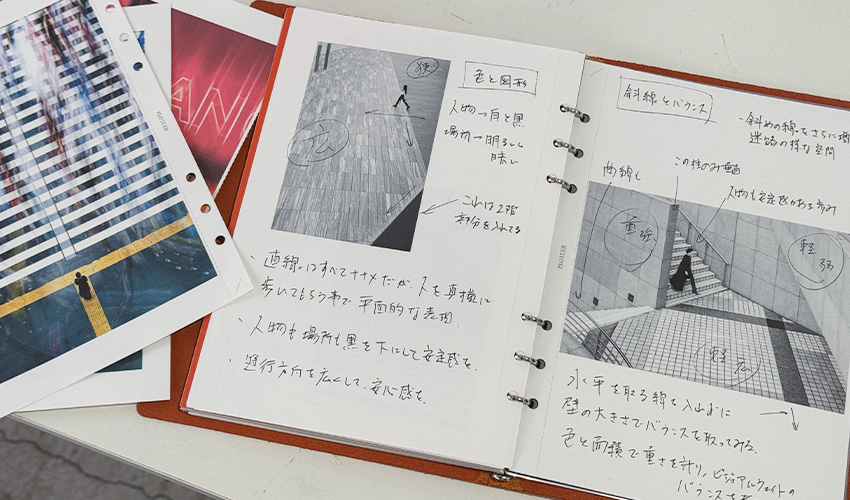 AN
狭
広
色と図形
人物→白と黒
場所→明るい
暗い
これは2階
部分を入れてる
・直線はすべてナナメだが、人を真横に
歩いてもらう事で平面的な表現.
・人物も場所も黒を下にして安定感を.
・進行方向を広くして、安心感を.
斜線とバランス
・斜めの線をさらに
迷路の様な空間
曲線も
この柱のみ垂直
人物も安定感がある歩み
重
強
軽
弱
軽
広
水平を取る線を入れずに
壁の大きさでバランスを取ってみる.
色と面積で重さを守り、ビジュアルウェイトの
バランスを